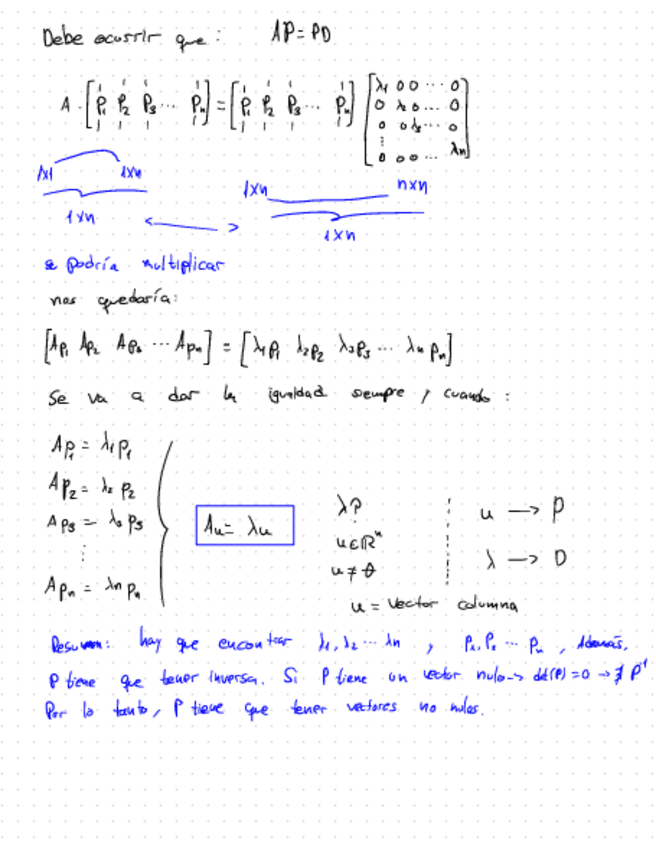 Debe ocurrir que: AP = PD
A · [p₁ p₂ p₃ ... pₙ] = [p₁ p₂ p₃ ... pₙ] [λ₁ 0 0 ... 0
0 λ₂ 0 ... 0
0 0 λ₃ ... 0
⋮
0 0 0 ... λₙ]
1x1 1xn 1xn nxn
1xn <—> 1xn
se podría multiplicar
nos quedaría:
[Ap₁ Ap₂ Ap₃ ... Apₙ] = [λ₁p₁ λ₂p₂ λ₃p₃ ... λₙpₙ]
Se va a dar la igualdad siempre y cuando:
Ap₁ = λ₁p₁
Ap₂ = λ₂p₂
Ap₃ = λ₃p₃
⋮
Apₙ = λₙpₙ
Au = λu
λ?
u ∈ ℝⁿ
u ≠ θ
u = vector columna
u —> P
λ —> D
Resumen: hay que encontrar λ₁, λ₂ ... λₙ y p₁, p₂ ... pₙ, Además,
P tiene que tener inversa. Si P tiene un vector nulo -> det(P) = 0 -> ∄ P⁻¹
Por lo tanto, P tiene que tener vectores no nulos.